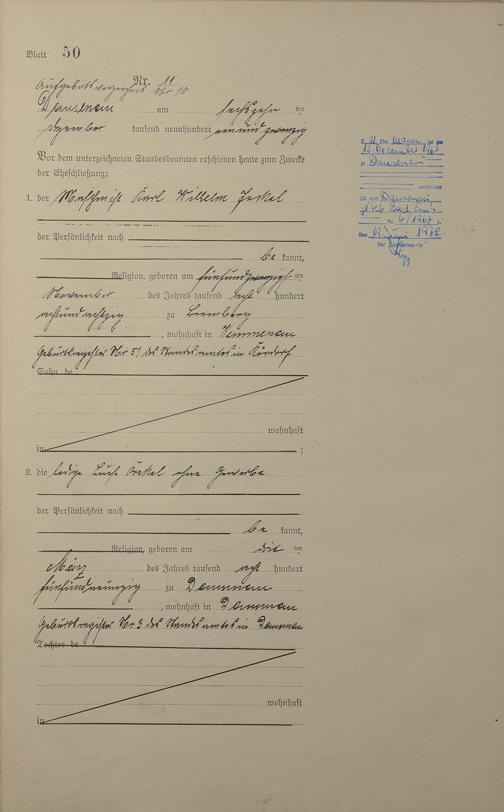 Blatt 50
Nr. 11
Aufgebotsverzeichnis Nr 10
Dausenau am sechszehn ten
Dezember tausend neunhundert einundzwanzig
Vor dem unterzeichneten Standesbeamten erschienen heute zum Zwecke
der Eheschließung:
1. der Karl Wilhelm
der Persönlichkeit nach
be kannt,
Religion, geboren am fünfundzwanzigs ten
November des Jahres tausend acht hundert
achtundachtzig zu Bremberg
, wohnhaft in
Geburtsregister Nr 51 des Standesamtes in Kördorf
Sohn de
wohnhaft
in ;
2. die ledige ohne Gewerbe
der Persönlichkeit nach
be kannt,
Religion, geboren am drit ten
März des Jahres tausend acht hundert
fünfundneunzig zu Dausenau
, wohnhaft in Dausenau
Geburtsregister Nr 3 des Standesamtes in Dausenau
Tochter de
wohnhaft
in
13. Dezember
in Dausenau
verstorben
Bad Ems
Nr. 4/1967
Den Juni 1978
Der Standesbeamte